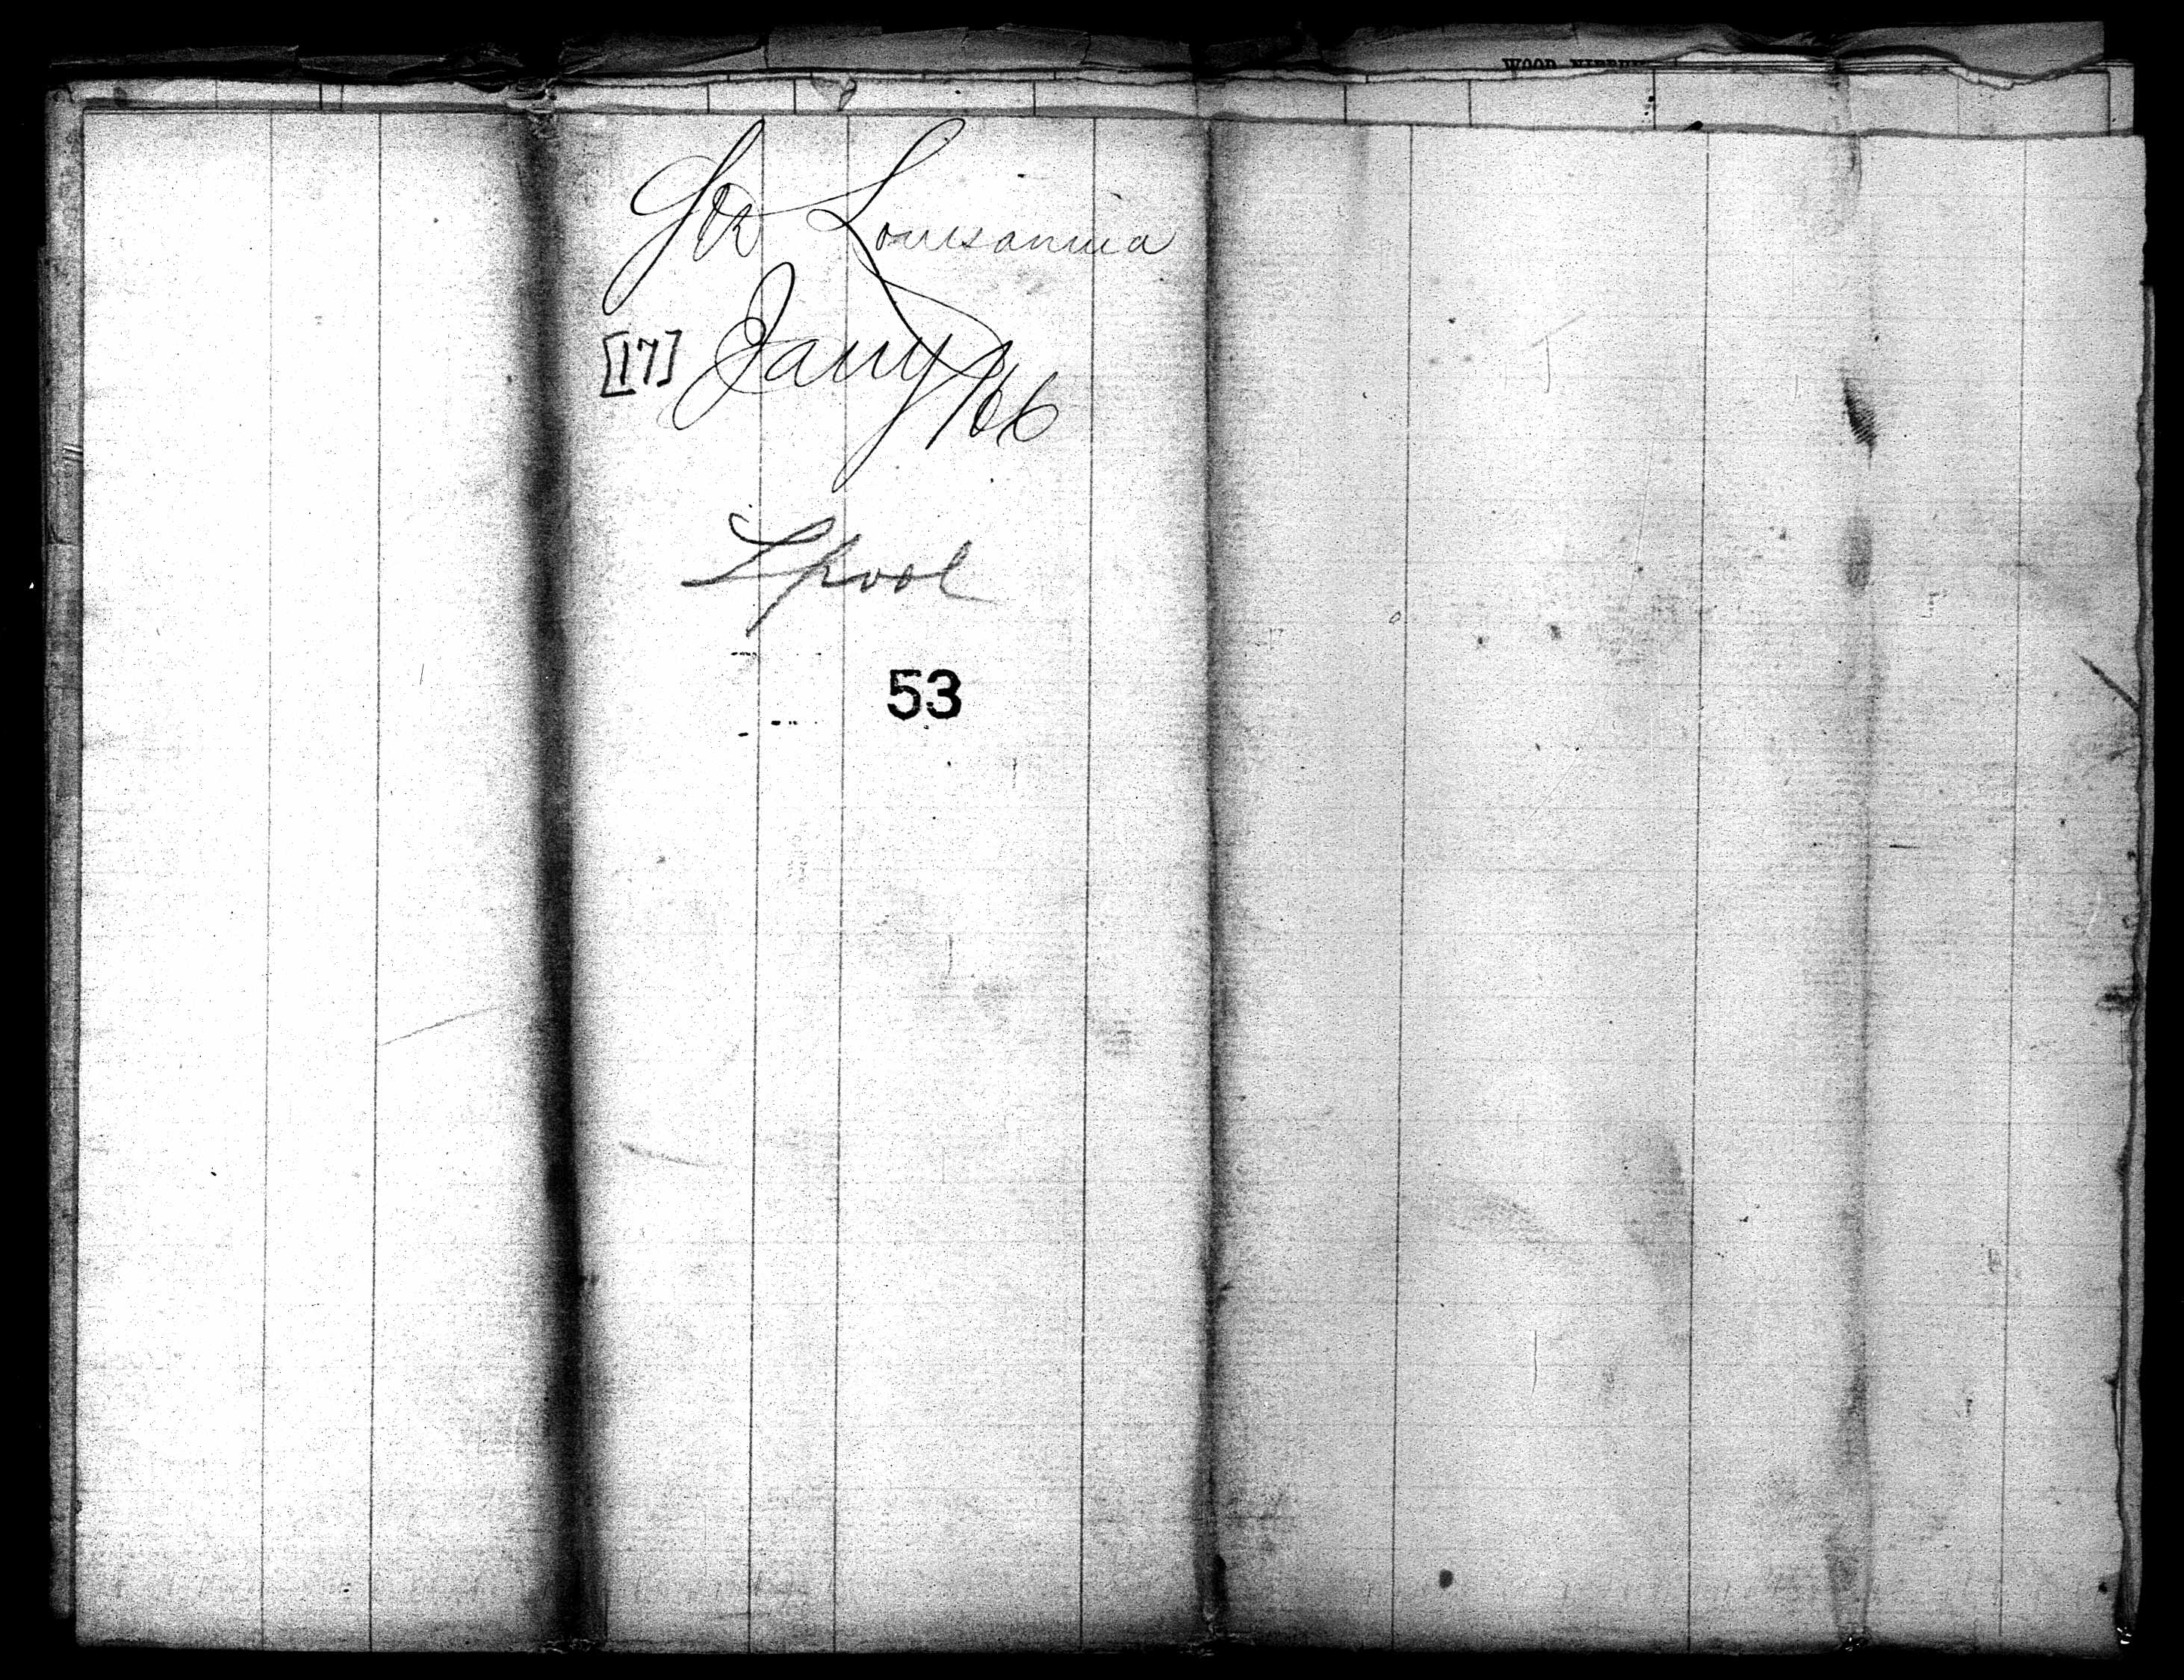 WOOD
SS Louisannia
[17] Jany/66
Lpool
53